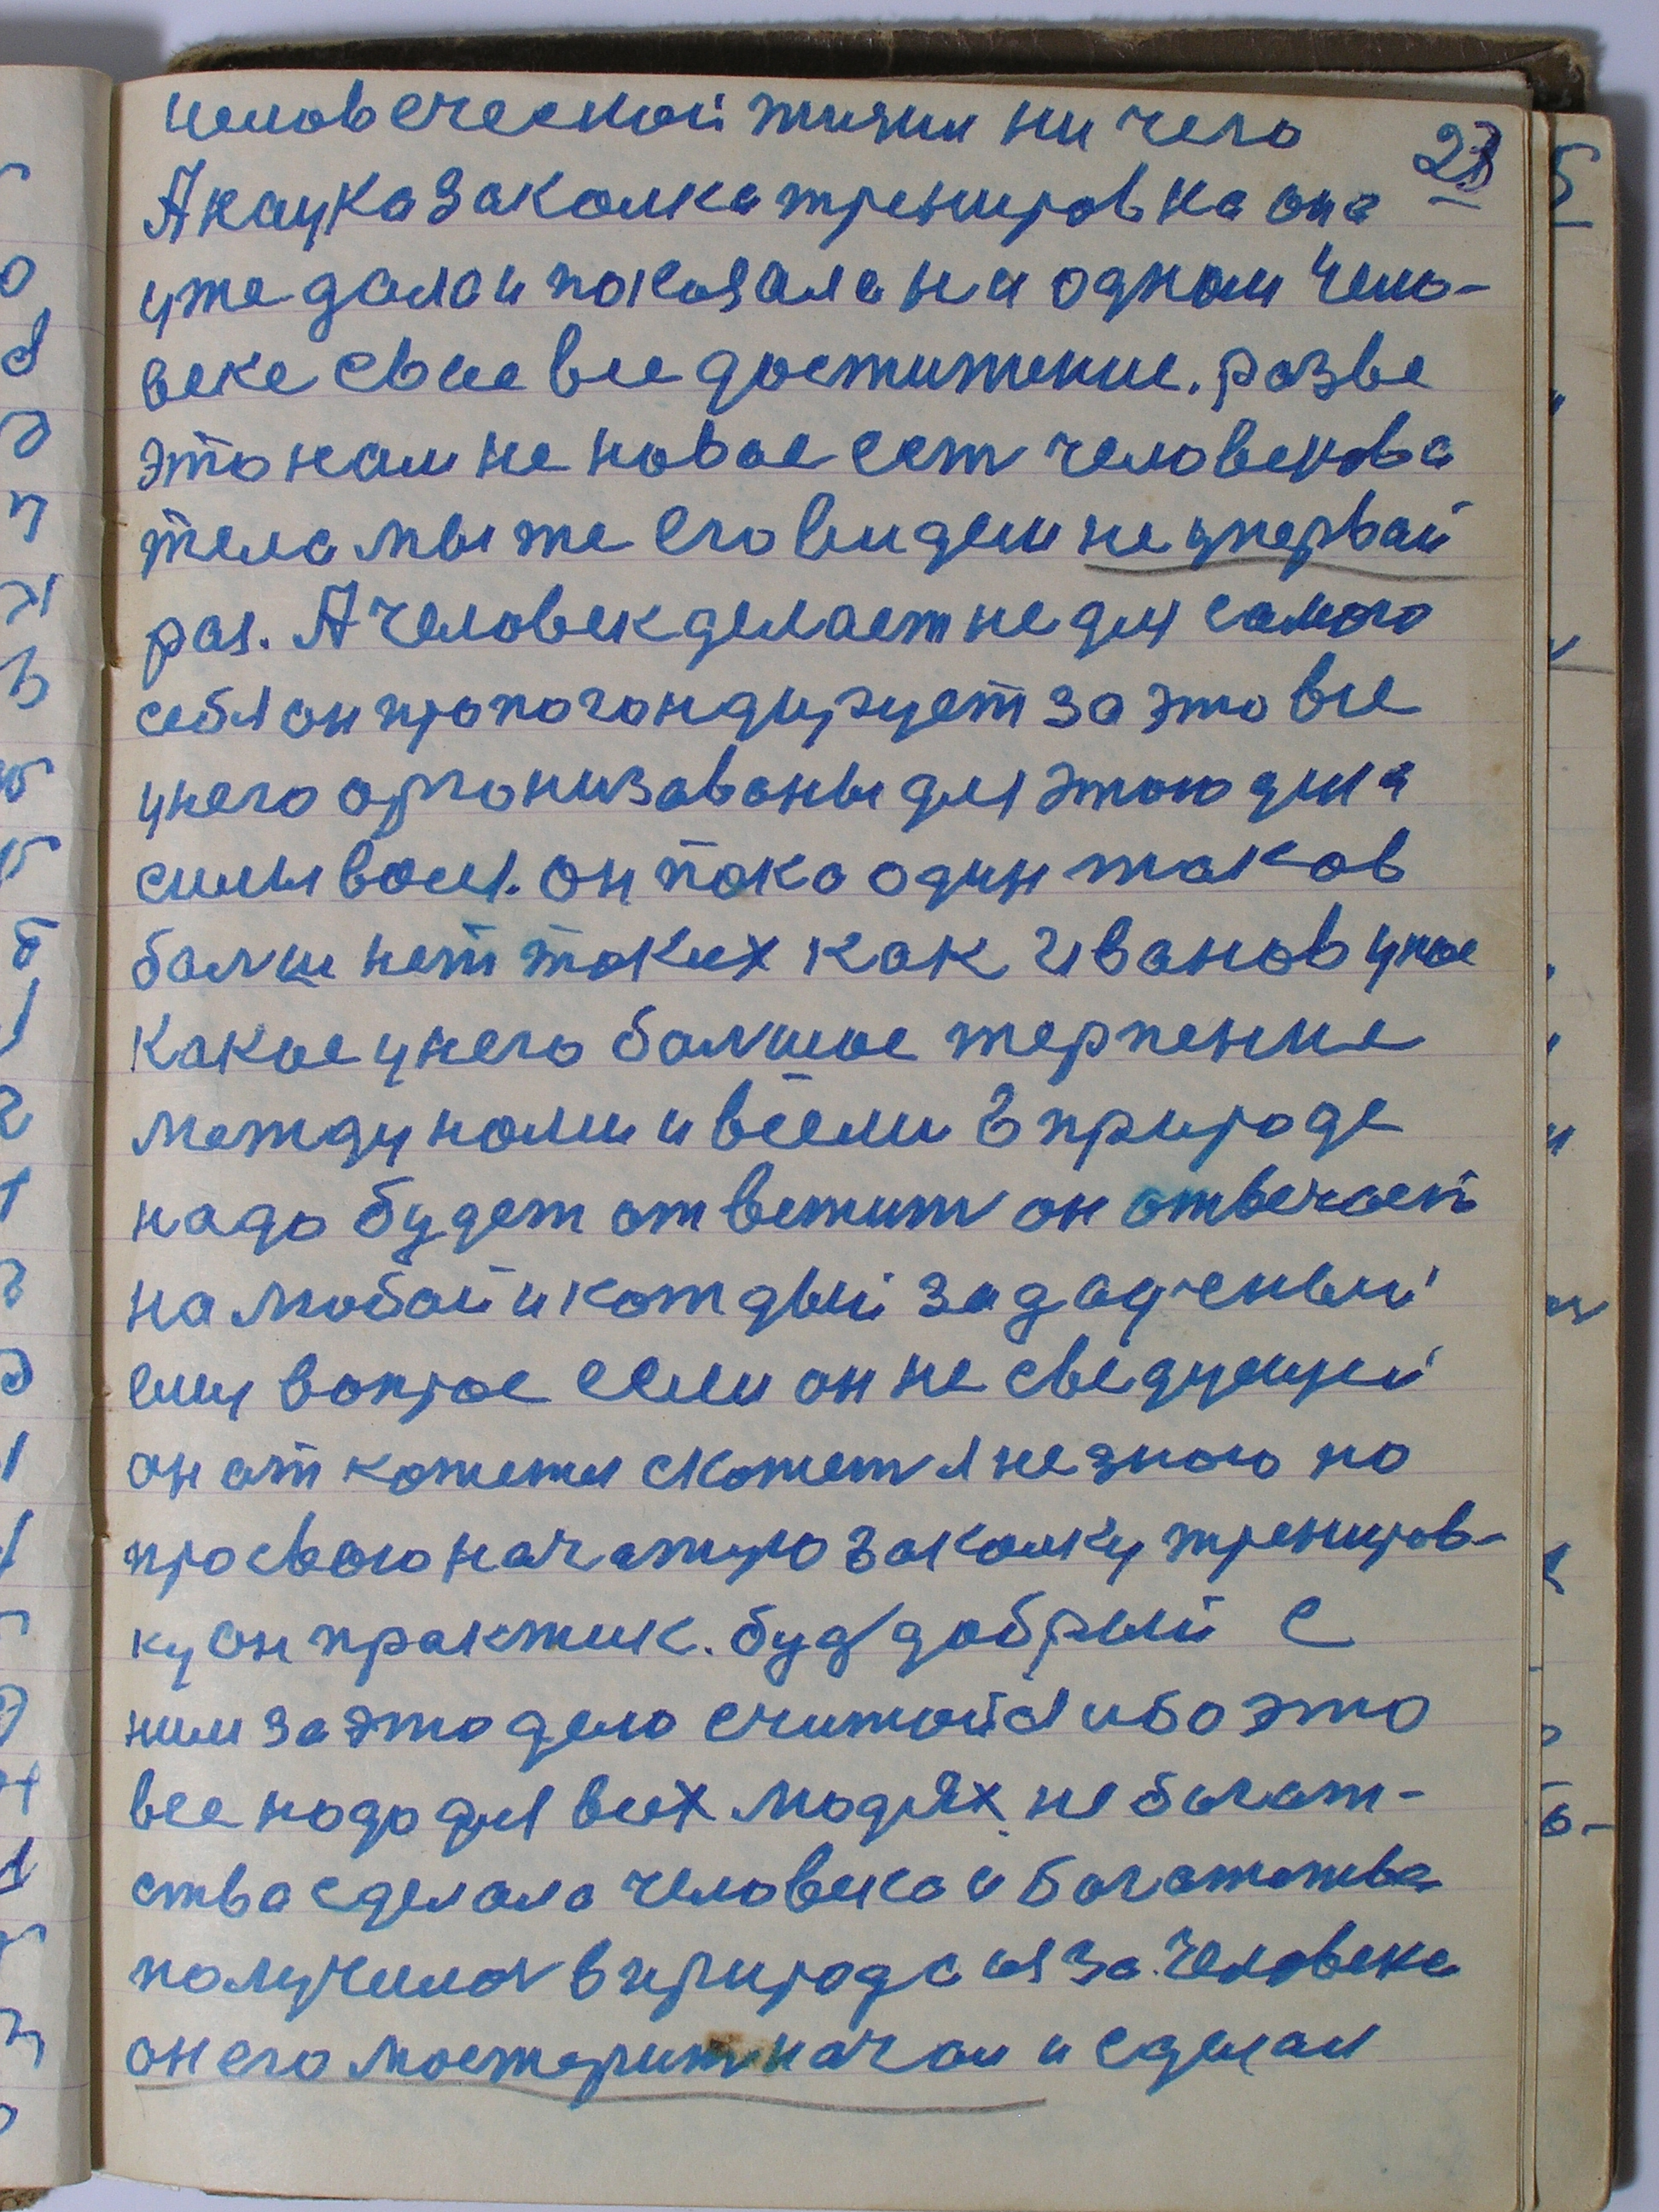 человеческой жизни ни чего
23
А наука закалка тренировка она
уже дала и показала на одном чело-
веке свое все достижение. разве
это нам не новое ест человекова
тело мы же его видем не упервай
раз. А человек делает не для самого
себя он пропогондирует за это все
у него организаваны для этого дела
силы воля. он пока один таков
балши нет таких как Иванов у нас
какое у него балшое терпение
между нами и всеми в природе
надо будет ответит он отвечает
на любой и кождый зададеный
ему вопрос если он не сведующей
он откожется скожет я не знаю но
про свою начатую закалку трениров-
ку он практик. буд добрый с
ним за это дело считайся ибо это
все надо для всех людях не богат-
ства сделала человека и богатства
получилас в природе из за человека
он его мостерит начал и сделал